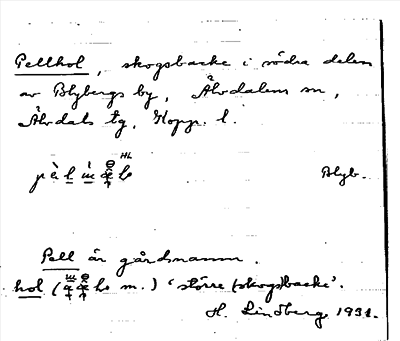 Pellhol, skogsbacke i södra delen
av Blybergs by, Älvdalens sn,
Älvdals tg, Kopp. l.
HL
Blyb.
Pell är gårdsnamn.
hol ( m.) 'större (skogs)backe'.
H. Lindberg 1931.